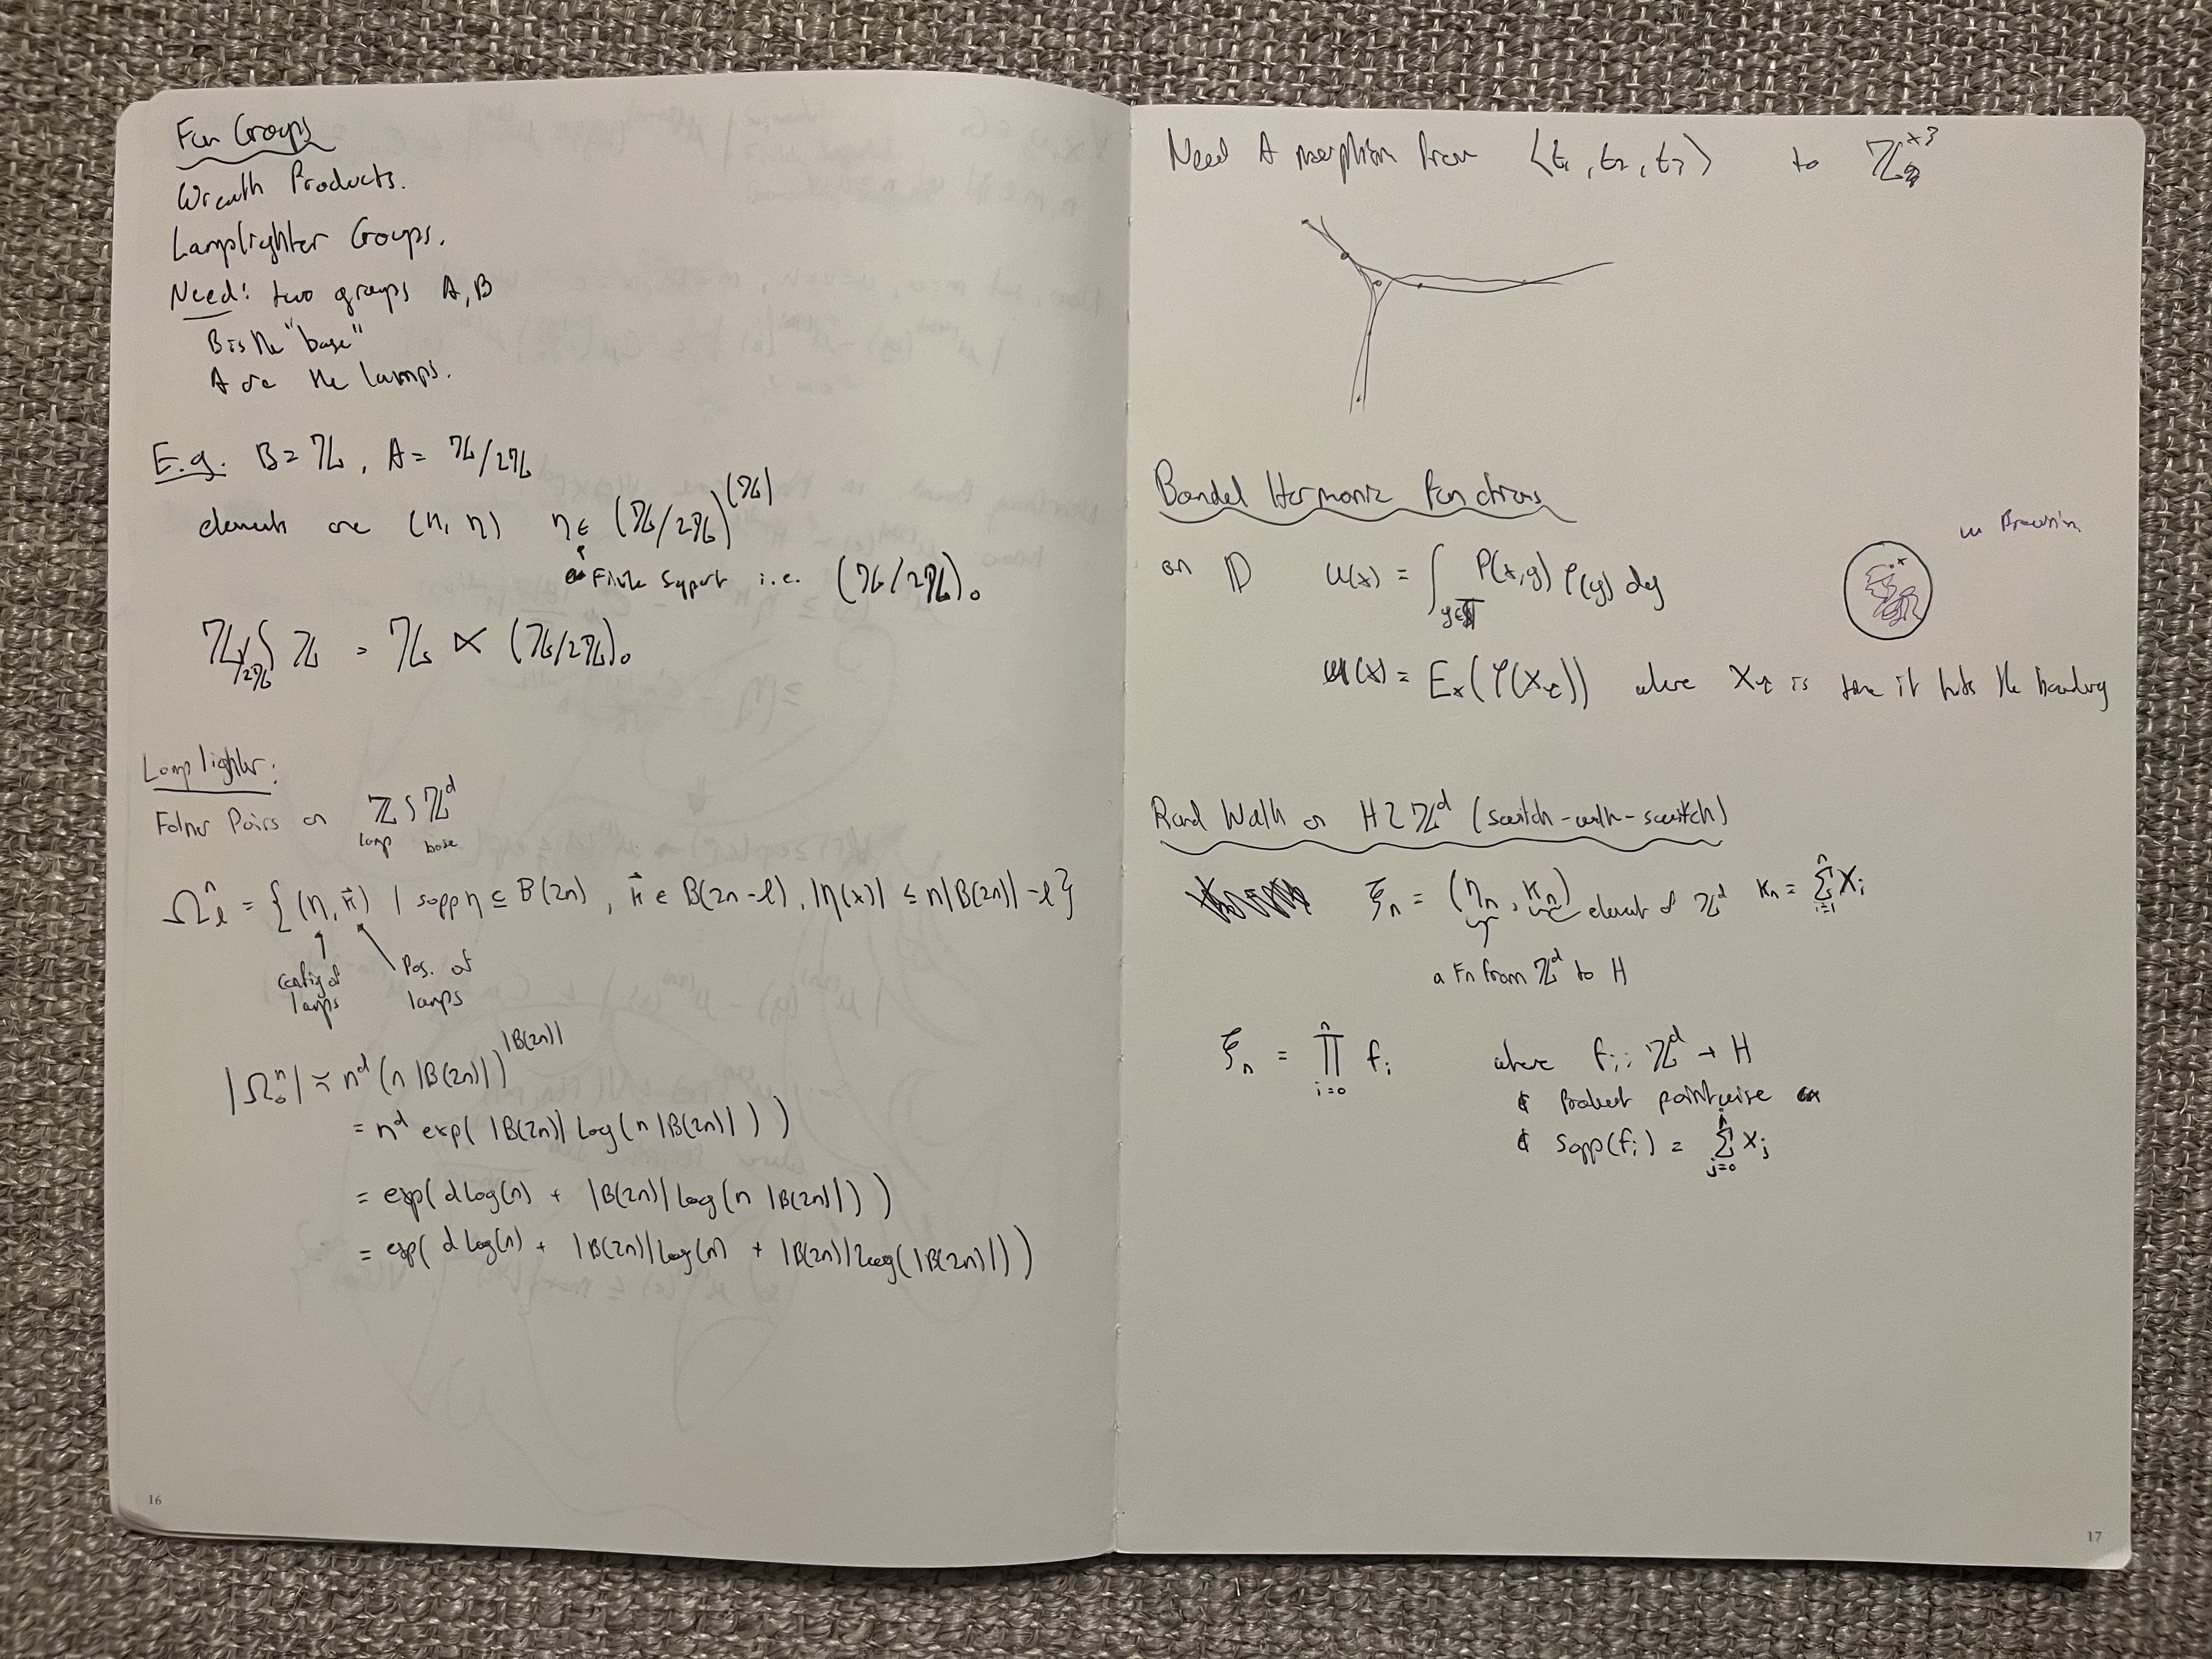 Fun Groups
Wreath Products.
Lamplighter Groups.
Need: two groups A,B
B is the "base"
A are the lamps.
E.g. B=ℤ, A=ℤ/2ℤ
element are (η, n) η ∈ (ℤ/2ℤ)^(ℤ)
finite support i.e. (ℤ/2ℤ)₀
ℤ/2ℤ ≀ ℤ = ℤ ⋉ (ℤ/2ℤ)₀
Lamplighter:
Folner Pairs on ℤ ≀ ℤ^d
lamp base
Ω_ℓ^n = { (η, k⃗) | supp η ⊆ B(2n), k⃗ ∈ B(2n-ℓ), |η(x)| ≤ n|B(2n)| -ℓ}
config of lamps
Pos. of lamps
|Ω_0^n| ≈ n^d (n |B(2n)|)^|B(2n)|
= n^d exp( |B(2n)| log(n |B(2n)| ) )
= exp( d log(n) + |B(2n)| log(n |B(2n)| ) )
= exp( d log(n) + |B(2n)| log(n) + |B(2n)| log( |B(2n)| ) )
16
Need A morphism from ⟨t₁, t₂, t₃⟩ to
Bounded Harmonic Functions
on D u(x) = ∫ P(x,y) φ(y) dy
u(x) = E_x(φ(X_τ)) where X_τ is time it hits the boundary
Rand Walk on H ≀ ℤ^d (switch-walk-switch)
ξ_n = (η_n, K_n) element of ℤ^d K_n = Σ_{i=1}^n X_i
a Fn from ℤ^d to H
ξ_n = ∏_{i=0}^n f_i where f_i: ℤ^d → H
& product pointwise
& supp(f_i) = Σ_{j=0}^i X_j
17